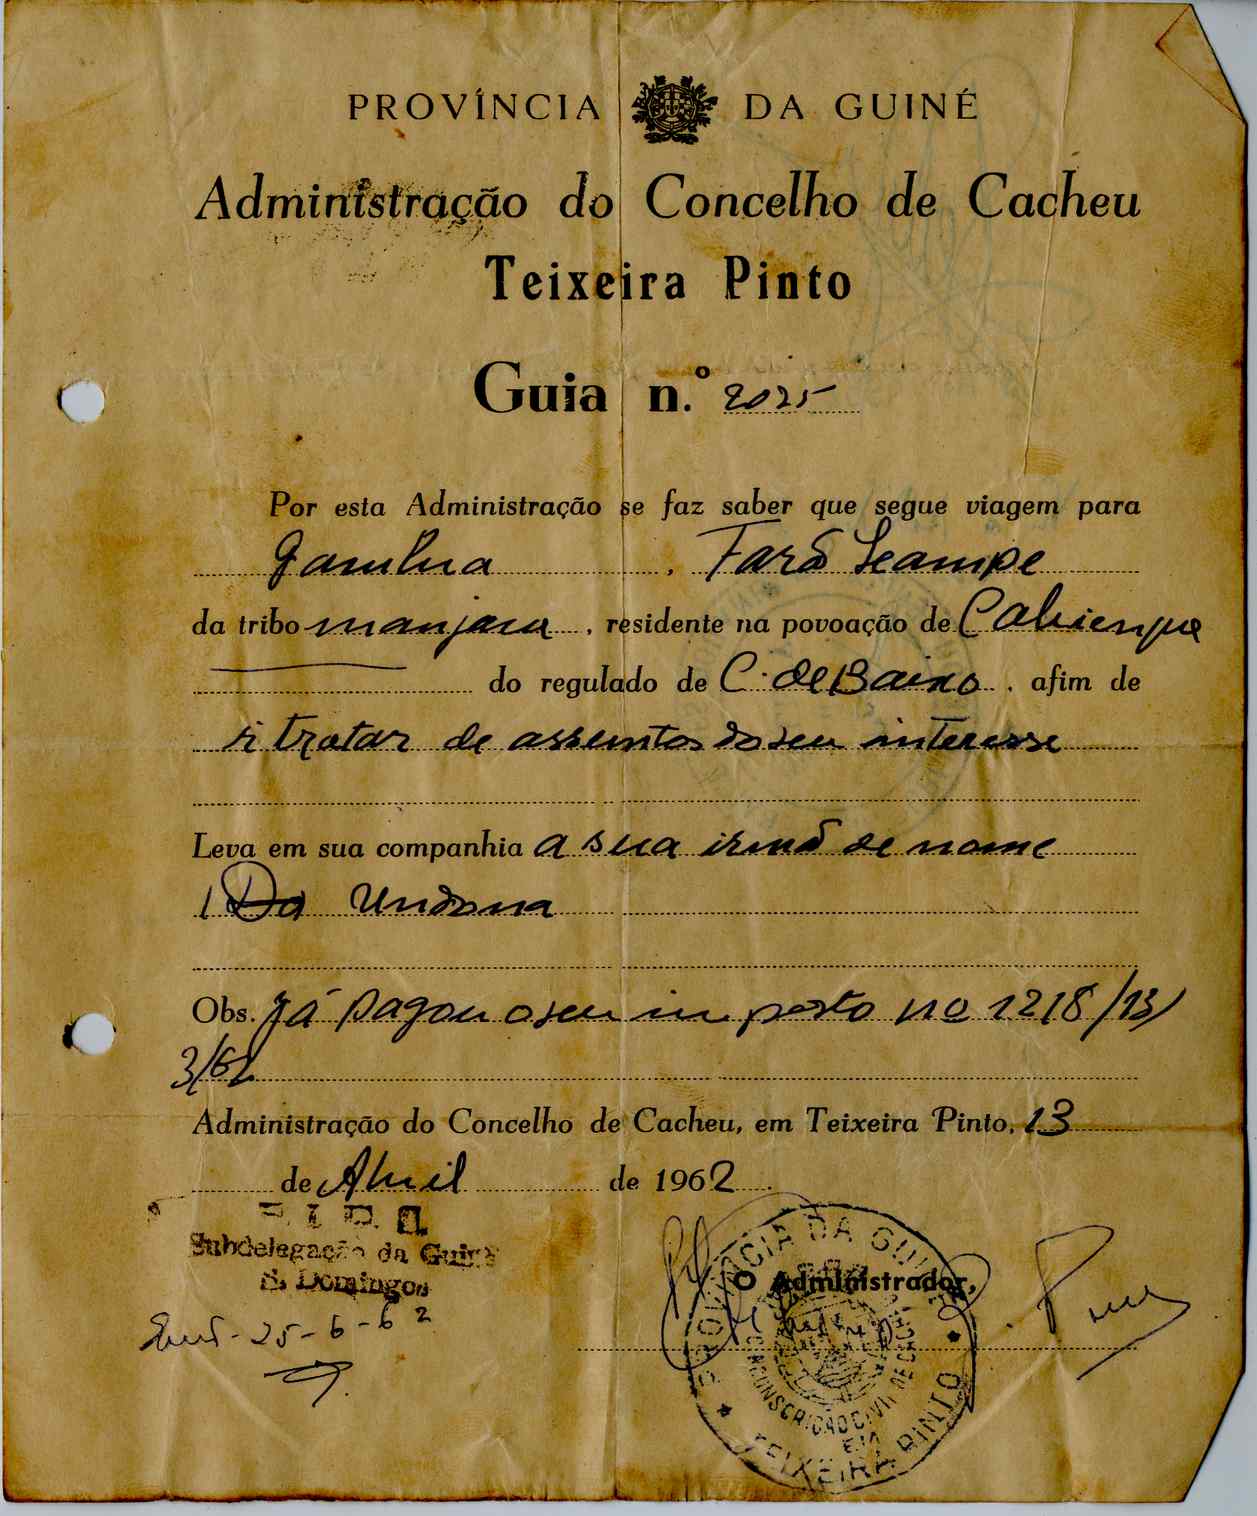 PROVÍNCIA DA GUINÉ
Administração do Concelho de Cacheu
Teixeira Pinto
Guia n.º 2025
Por esta Administração se faz saber que segue viagem para
Gambia, Fará Leampe
da tribo manjaca, residente na povoação de Cabienque
do regulado de C. de Baixo, afim de
ir tratar de assuntos do seu interesse
Leva em sua companhia a sua irmã de nome
1 Da Undona
Obs. Já pagou o seu imposto nº 1218/13/
3/62
Administração do Concelho de Cacheu, em Teixeira Pinto, 13
de Abril de 1962.
P. I. D. E.
Subdelegação da Guiné
S. Domingos
25-6-62
O Administrador,
PROVÍNCIA DA GUINÉ
CIRCUNSCRIÇÃO CIVIL DE CACHEU
EM
TEIXEIRA PINTO